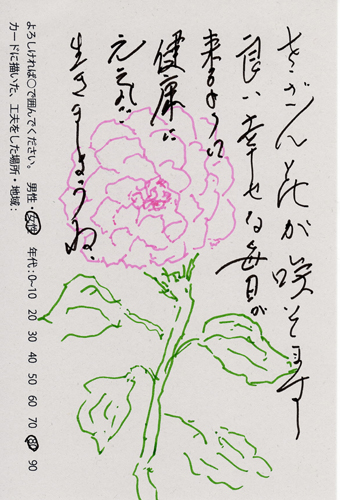 さざん花が咲きます
良い幸せな毎日が
来るように
健康に
元気に
生きましょうね、
よろしければ○で囲んでください。 男性・女性 年代:0~10 20 30 40 50 60 70 80 90
カードに描いた、工夫をした場所・地域: